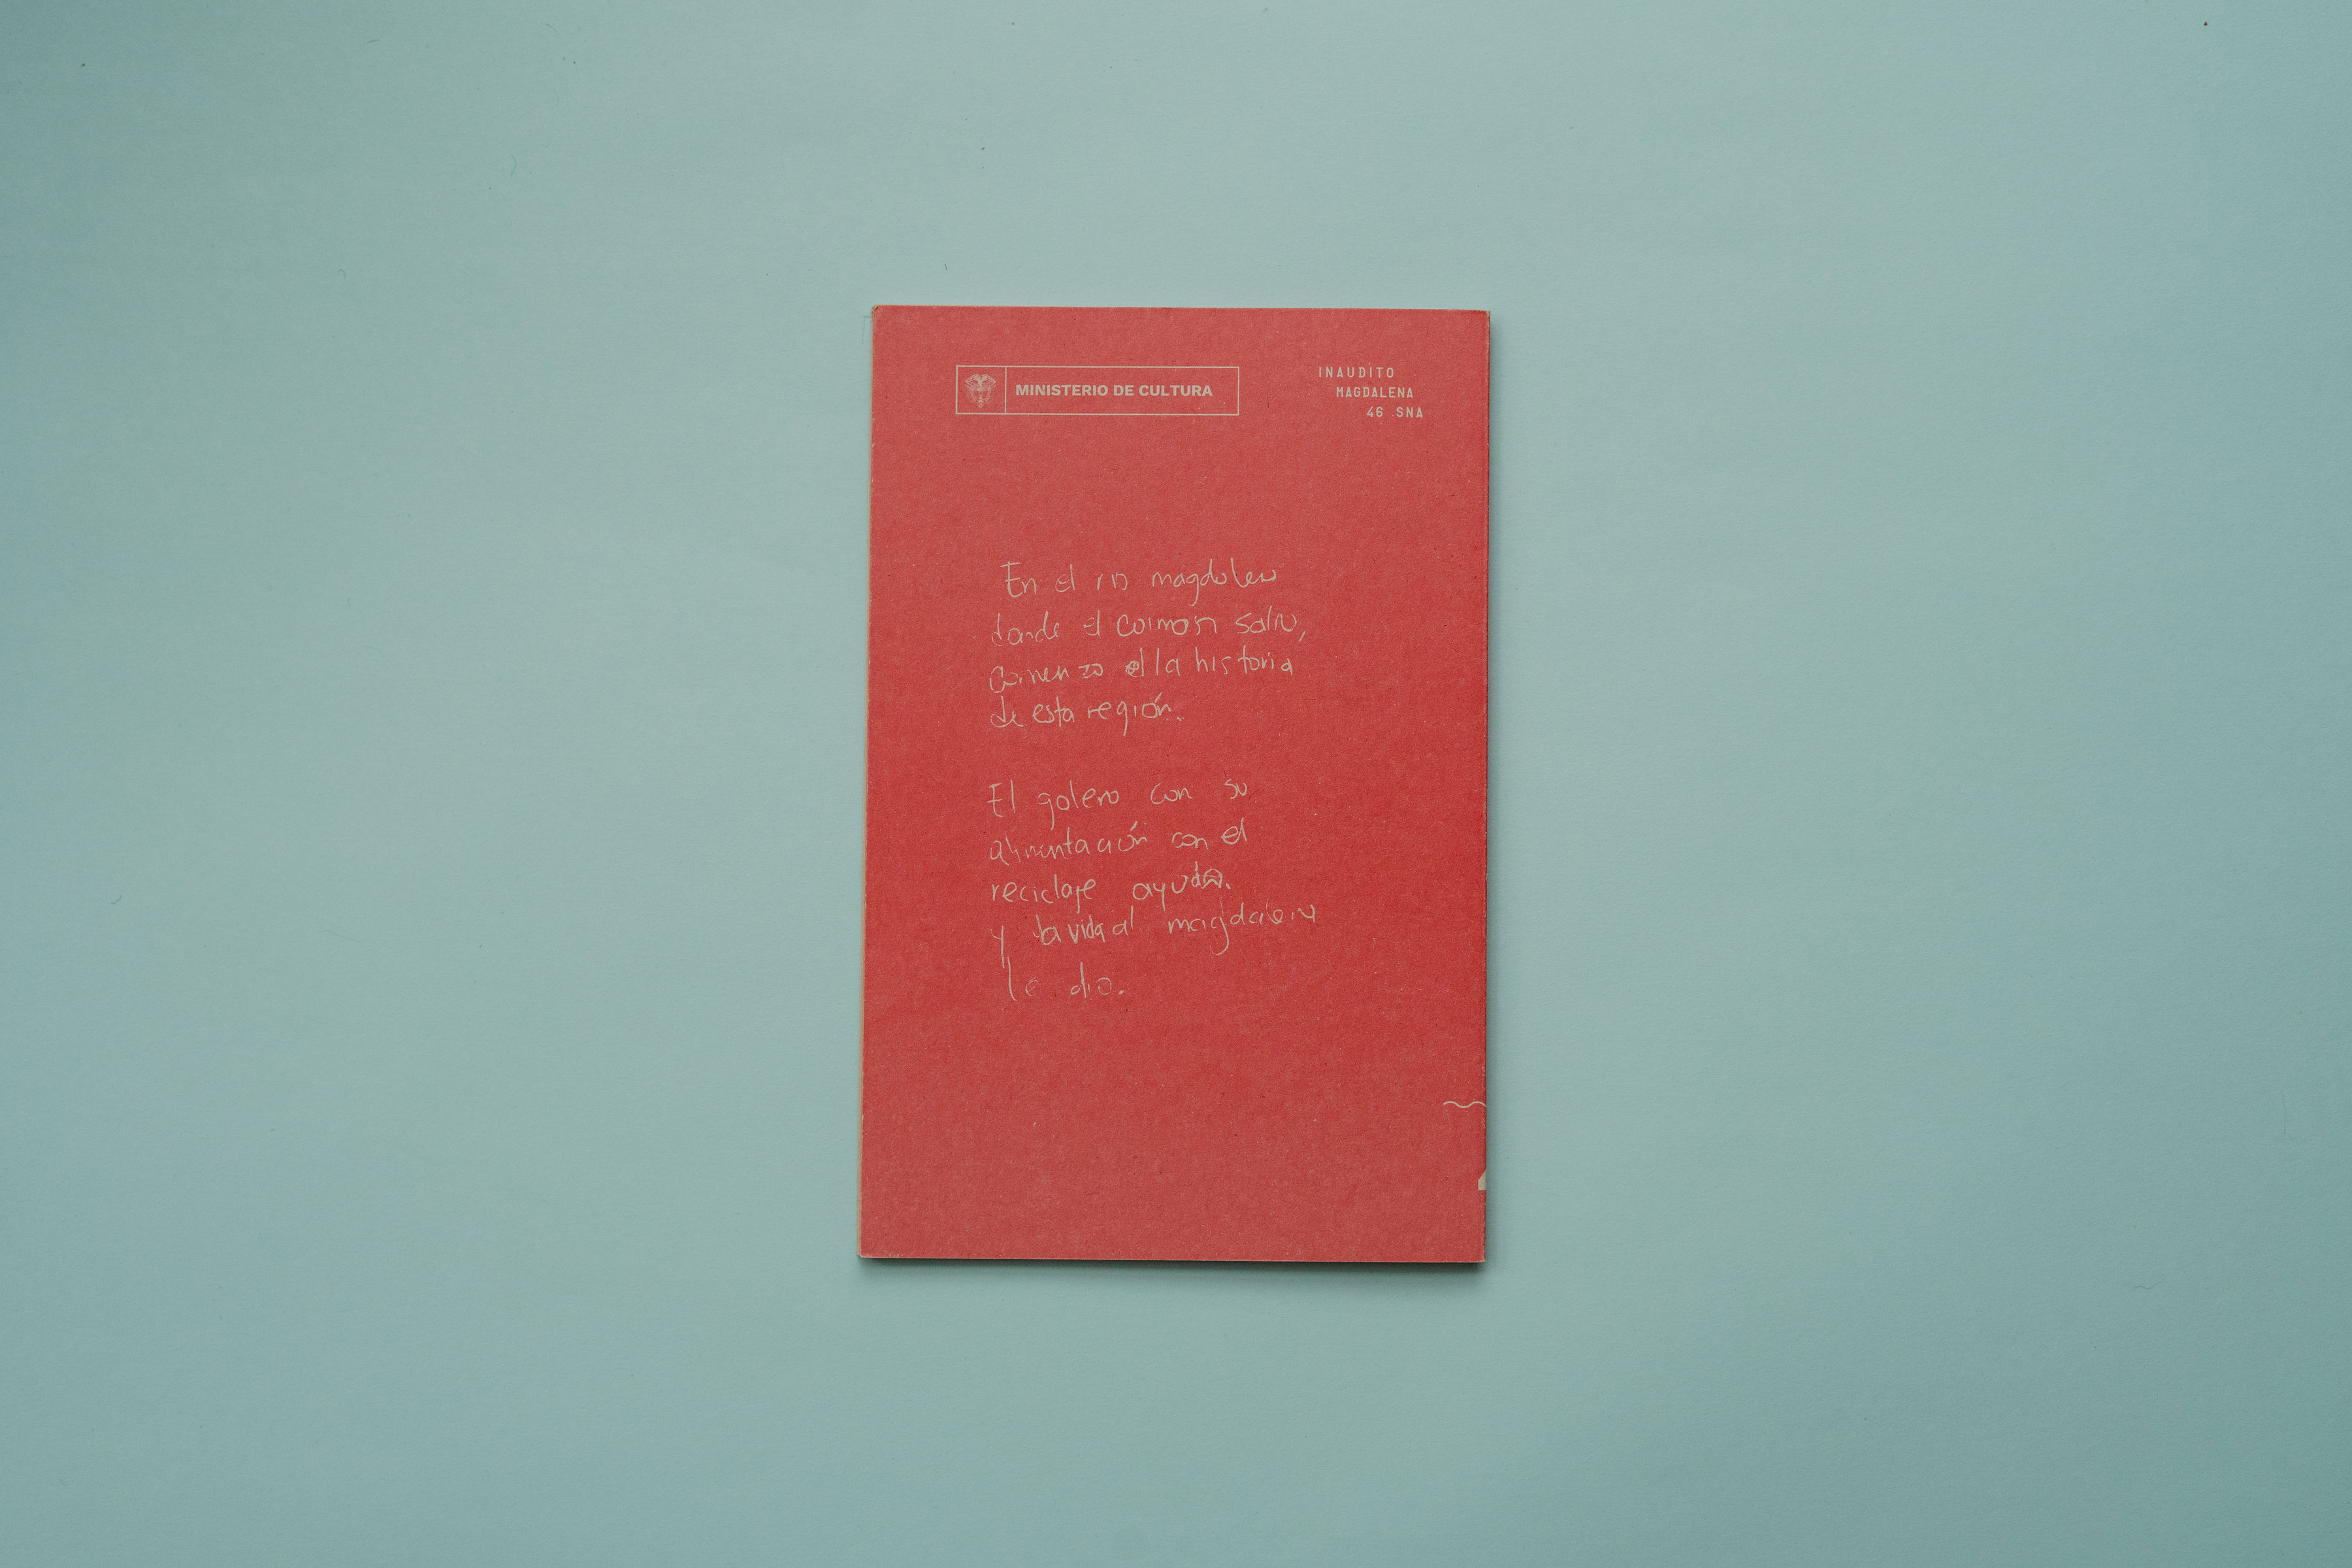 MINISTERIO DE CULTURA
INAUDITO
MAGDALENA
46 SNA
En el rio magdalena
donde el caiman salio,
comenzo la historia
de esta región.
El golero con su
alimentación con el
reciclaje ayuda.
y la vida al magdalena
le dio.